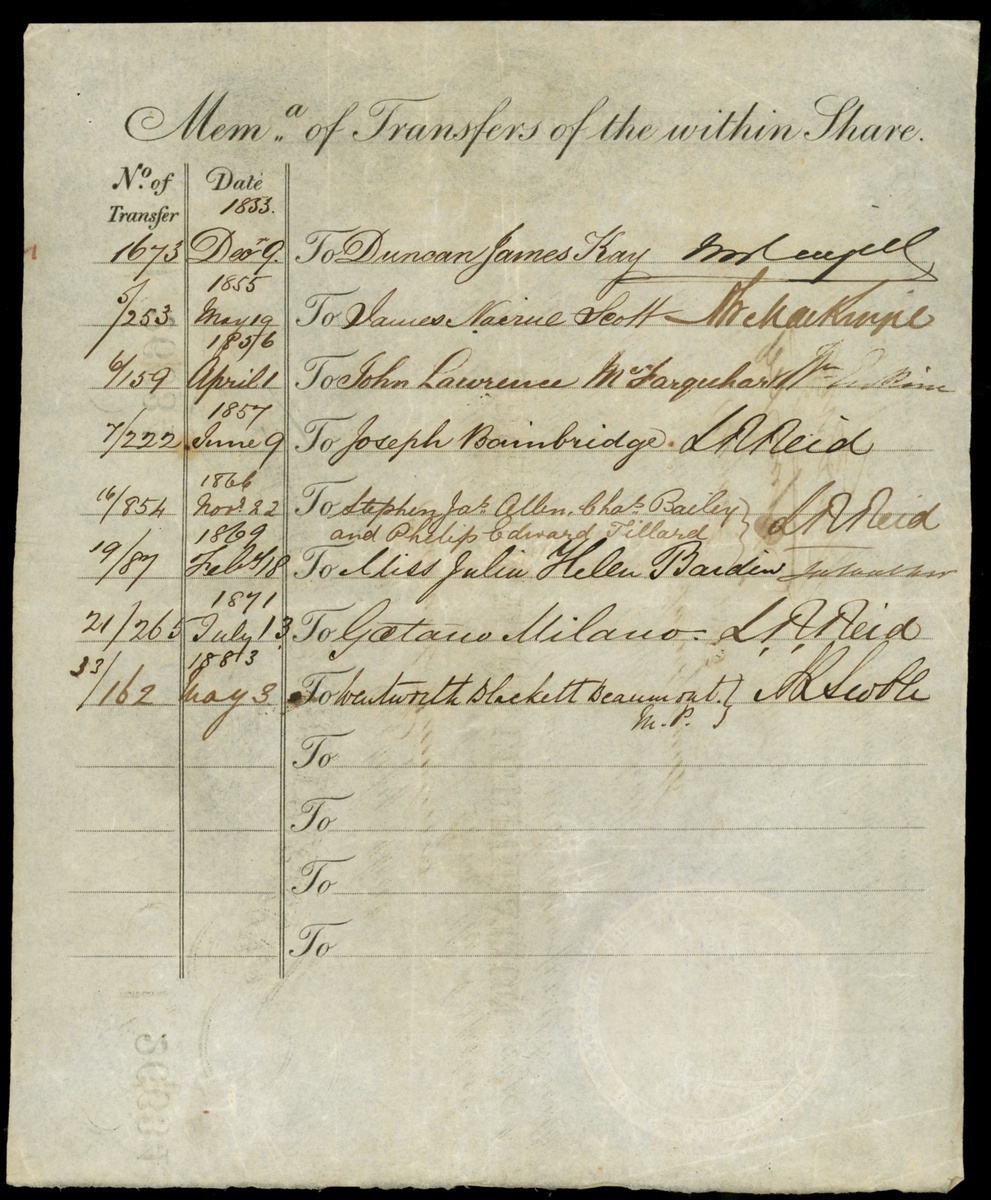 Mem.ª of Transfers of the within Share.
No. of Transfer Date
1833.
1673 Decr 9 To Duncan James Kay
1855
5/253 May 19 To James Nairne Scott
1856
6/159 April 1 To John Lawrence McFarquhar Wm
1857
7/222 June 9 To Joseph Bainbridge. L R Reid
1866
16/854 Novr 22 To Stephen Jas. Allen, Chas. Bailey
and Philip Edward Tillard } L R Reid
1869
19/87 Feby 18 To Miss Julia Helen Bardin
1871
21/265 July 13 To Gaetano Milano. L R Reid
1883
33/162 May 3 To Wentworth Blackett Beaumont. }
M.P.
To
To
To
To